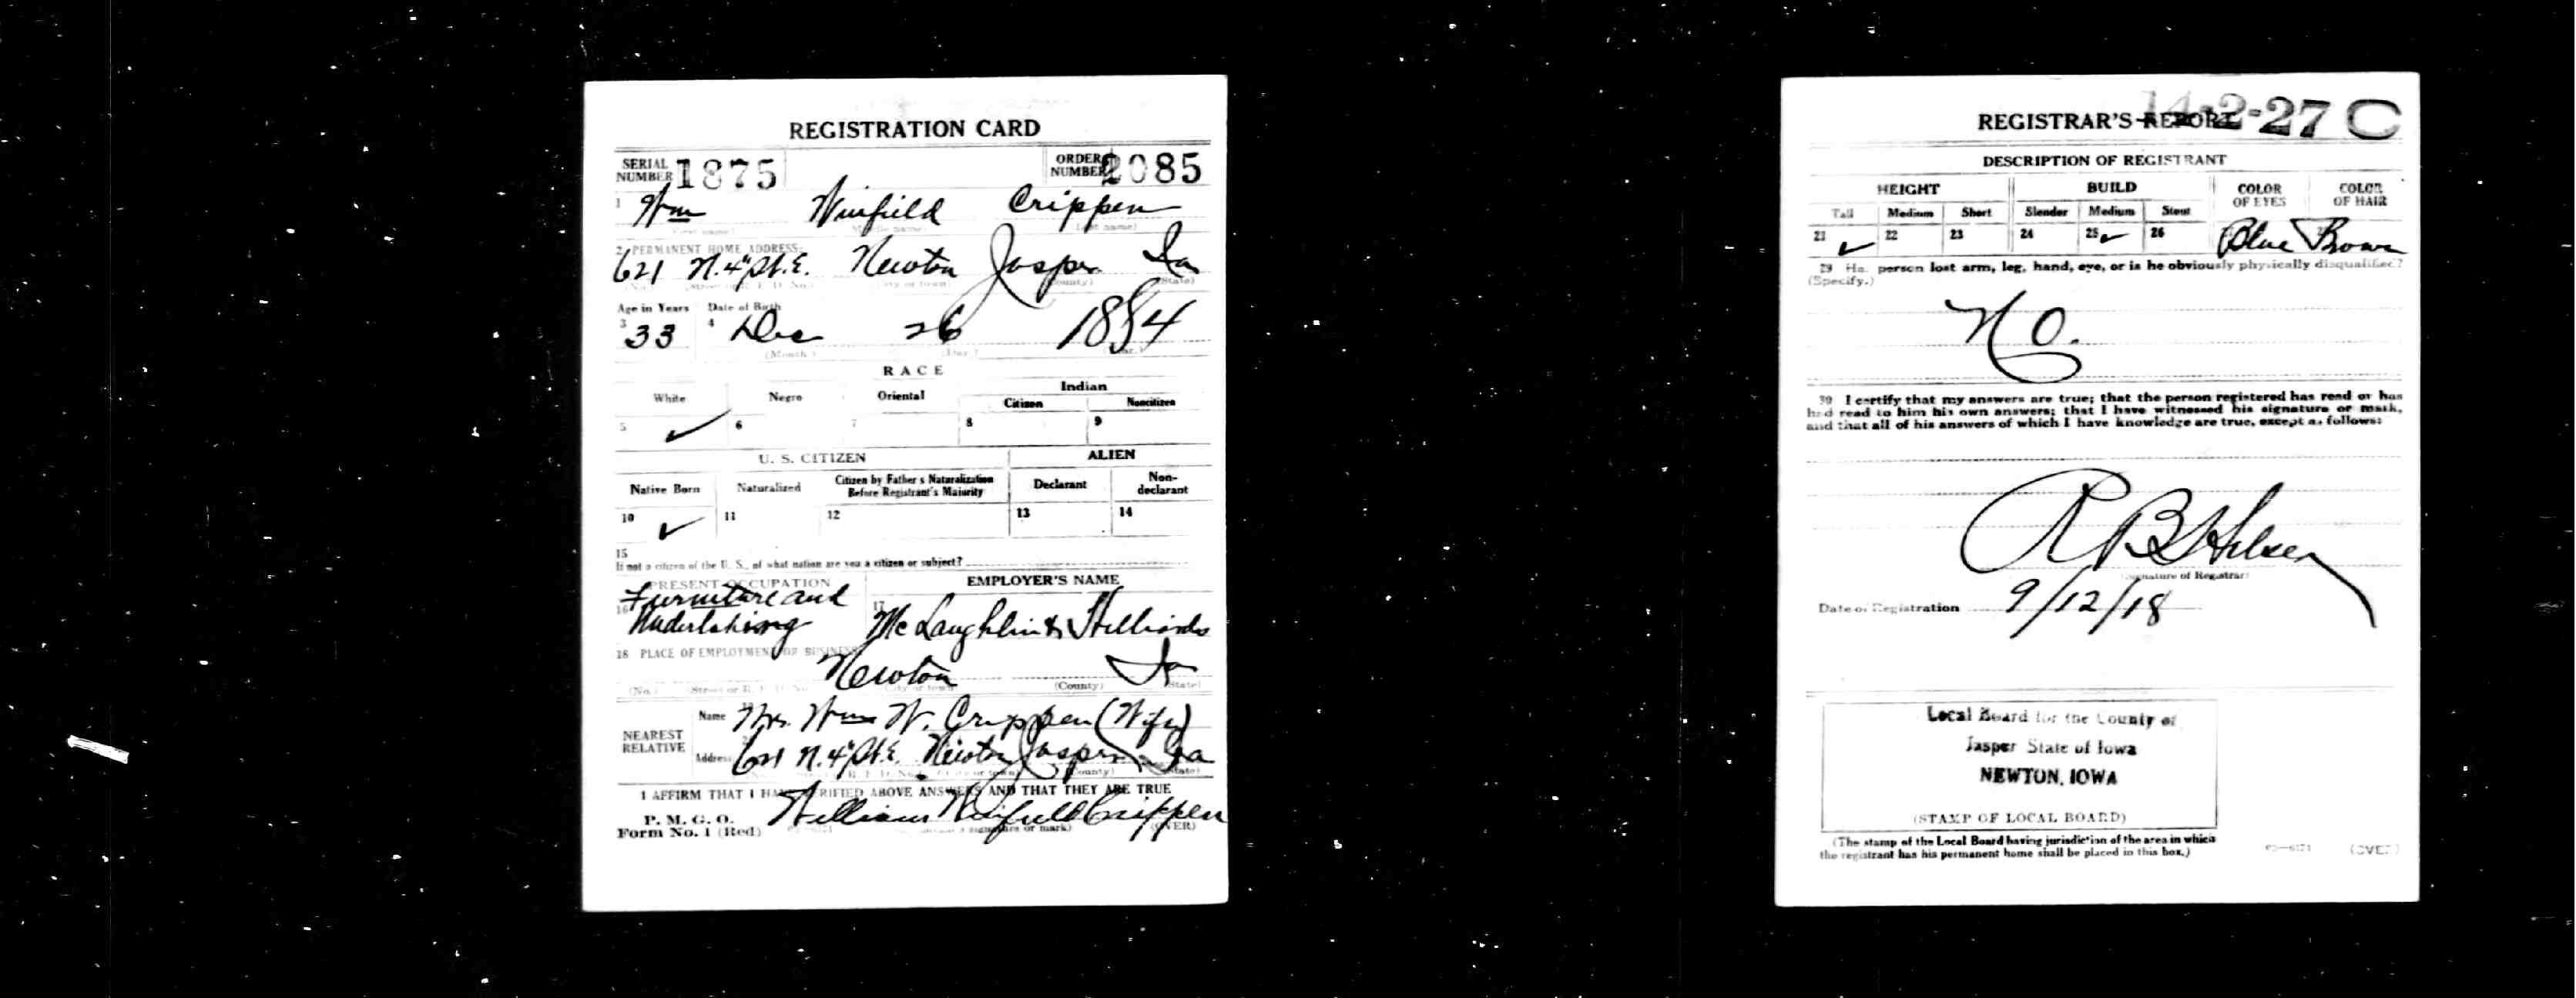 REGISTRATION CARD
SERIAL NUMBER 1875 ORDER NUMBER 2085
1 Wm Winfield Crippen
(First name) (Middle name) (Last name)
2 PERMANENT HOME ADDRESS:
621 N. 4" St. E. Newton Jasper Ia
(No.) (Street or R. F. D. No.) (City or town) (County) (State)
Age in Years Date of Birth
3 33 4 Dec 26 1884
(Month.) (Day.) (Year.)
RACE
White Negro Oriental Indian
Citizen Noncitizen
5 ✓ 6 7 8 9
U. S. CITIZEN ALIEN
Native Born Naturalized Citizen by Father's Naturalization Before Registrant's Majority Declarant Non-declarant
10 ✓ 11 12 13 14
15
If not a citizen of the U. S., of what nation are you a citizen or subject?
PRESENT OCCUPATION EMPLOYER'S NAME
16 Furniture and 17
Undertaking McLaughlin &
18 PLACE OF EMPLOYMENT OR BUSINESS
Newton Ia
(No.) (Street or R. F. D. No.) (City or town) (County) (State)
NEAREST RELATIVE
Name Mrs. Wm W. Crippen (Wife)
Address 621 N. 4" St. E. Newton Jasper Ia
(No.) (Street or R. F. D. No.) (City or town) (County) (State)
I AFFIRM THAT I HAVE VERIFIED ABOVE ANSWERS AND THAT THEY ARE TRUE
P. M. G. O.
Form No. 1 (Red) William Winfield Crippen
(Registrant's signature or mark) (OVER)
REGISTRAR'S REPORT 14-2-27 C
DESCRIPTION OF REGISTRANT
HEIGHT BUILD COLOR OF EYES COLOR OF HAIR
Tall Medium Short Slender Medium Stout
21 ✓ 22 23 24 25 ✓ 26 Blue Brown
29 Has person lost arm, leg, hand, eye, or is he obviously physically disqualified?
(Specify.)
NO.
30 I certify that my answers are true; that the person registered has read or has
had read to him his own answers; that I have witnessed his signature or mark,
and that all of his answers of which I have knowledge are true, except as follows:
R B
(Signature of Registrar)
Date of Registration 9/12/18
Local Board for the County of
Jasper State of Iowa
NEWTON, IOWA
(STAMP OF LOCAL BOARD)
(The stamp of the Local Board having jurisdiction of the area in which
the registrant has his permanent home shall be placed in this box.)
(OVER)